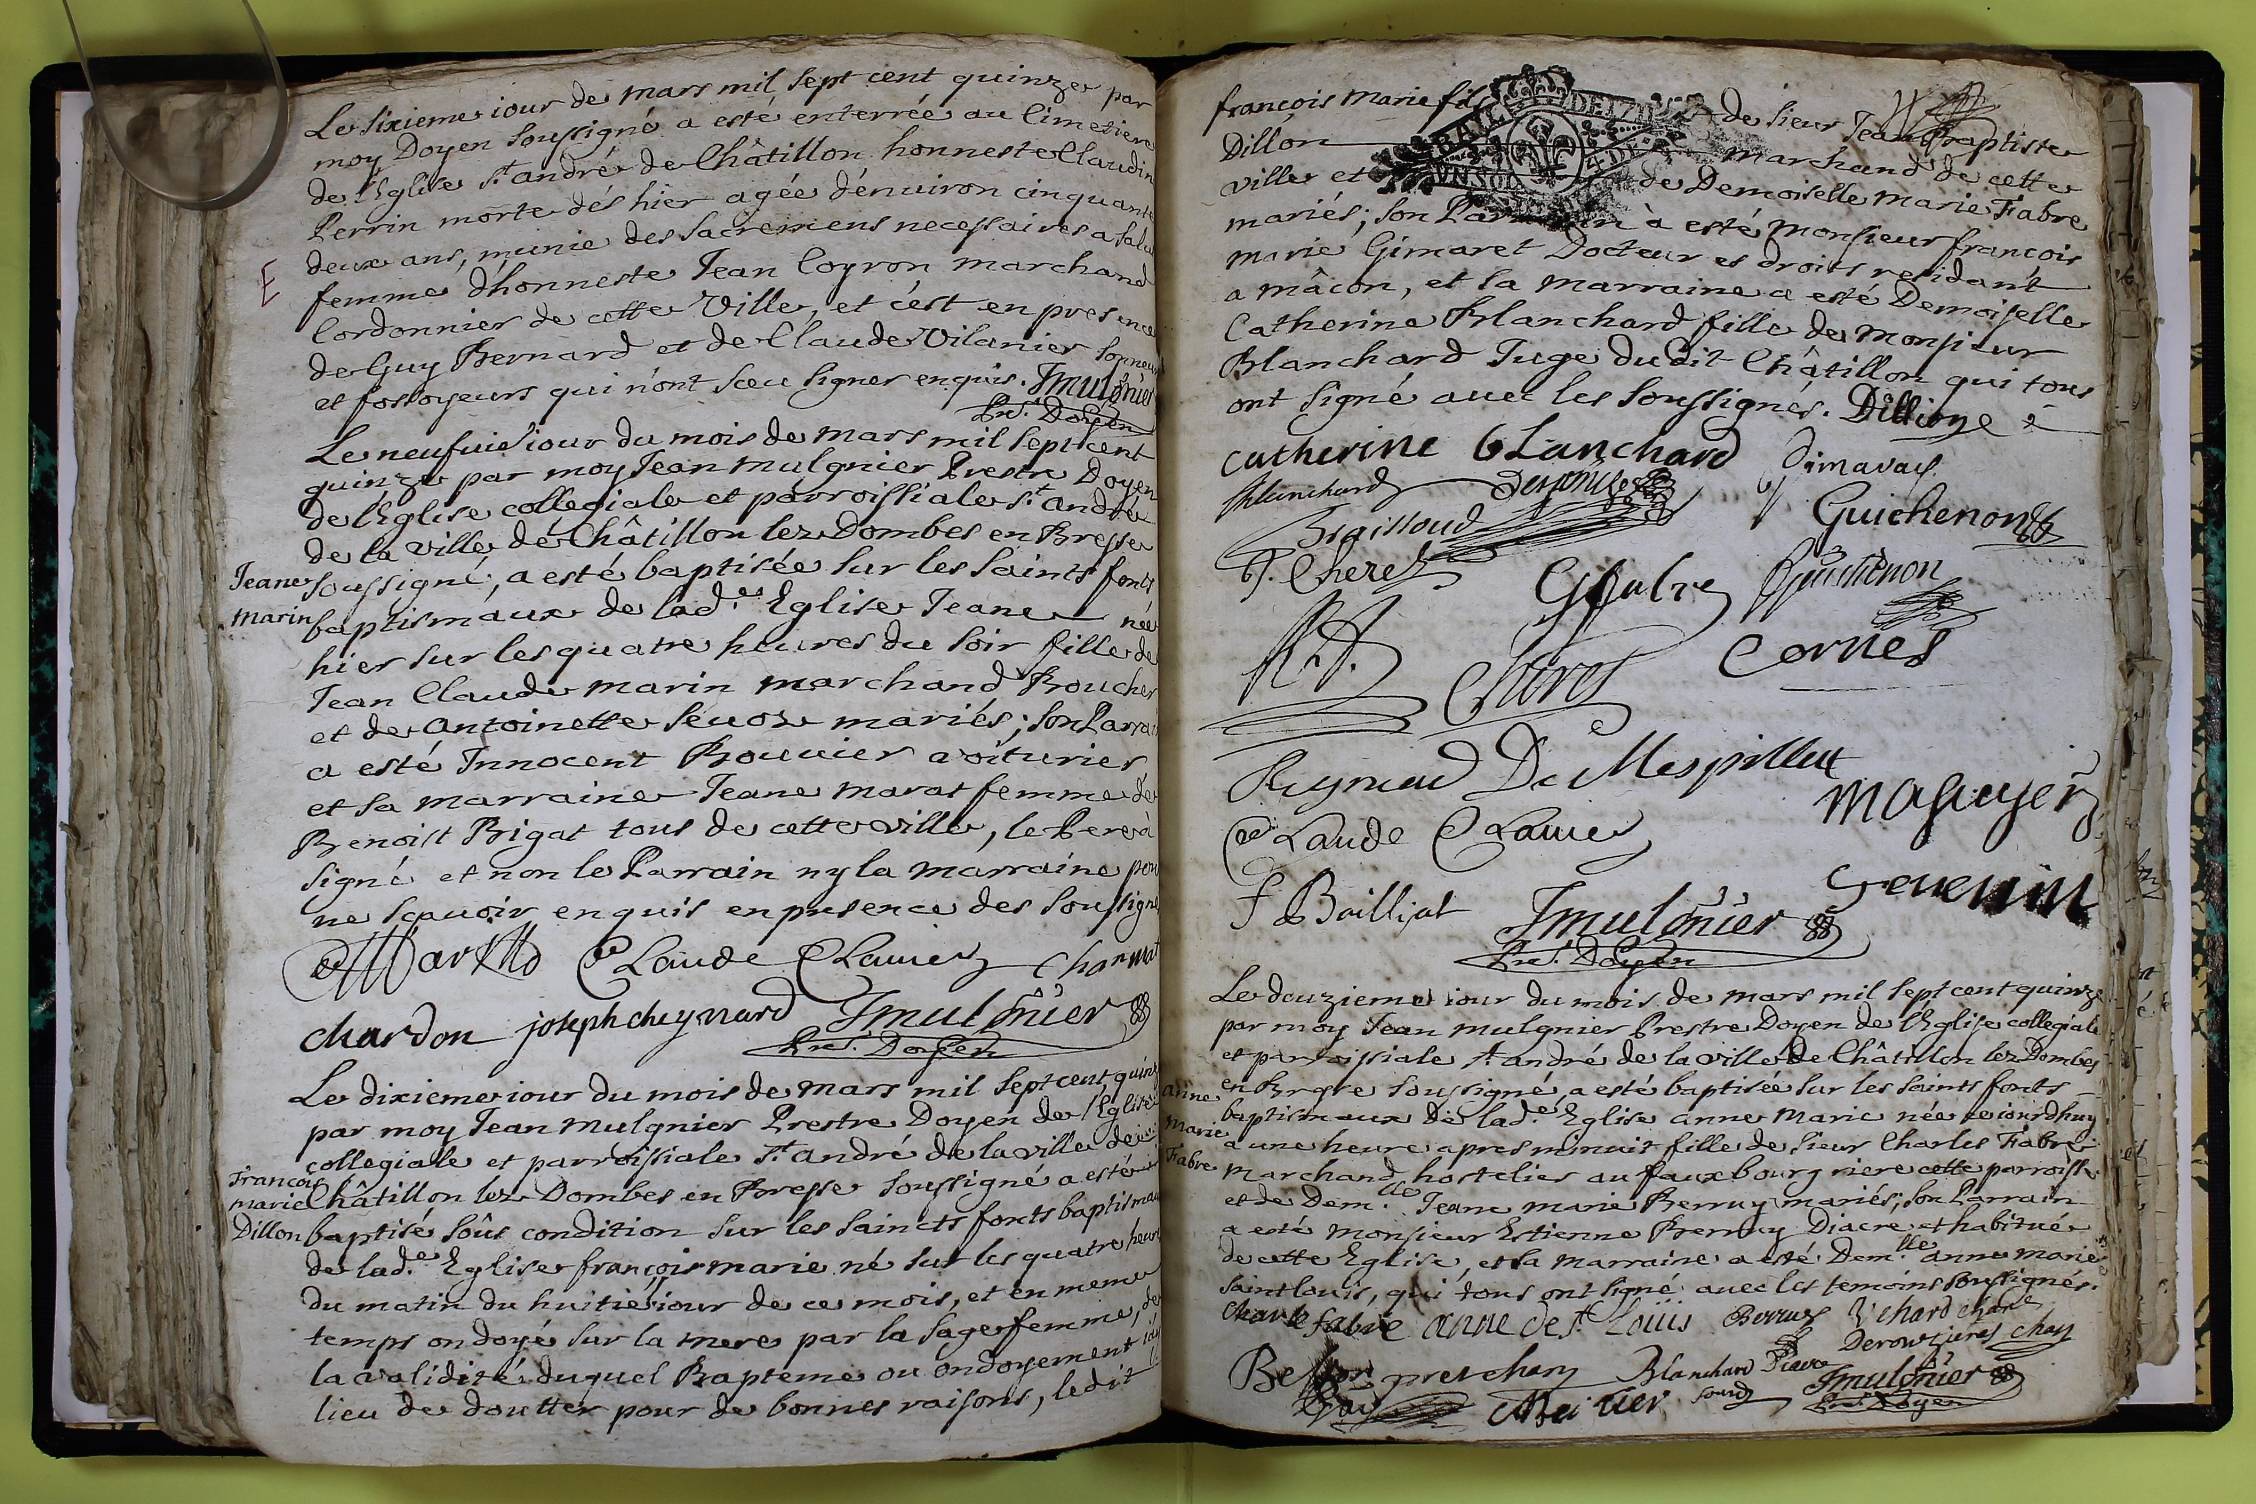 Le sixieme iour de mars mil sept cent quinze par
moy Doyen soussigné a esté enterrée au Cimetiere
de l'Eglise St. andré de Châtillon honneste Claudin
Perrin morte dés hier agée d'enuiron cinquante
deux ans, munie des sacremens necessaires a salut
E
femme d'honneste Jean Coyron marchand
Cordonnier de cette Ville, et c'est en presence
de Guy Bernard et de Claude Vilanier sonneurs
et fossoyeurs qui n'ont sceu signer enquis. Jmulgnier
Pre. Doyen
Le neufuie iour du mois de mars mil sept cent
quinze par moy Jean mulgnier Prestre Doyen
de l'Eglise collegiale et parroissiale St. andre
de la ville de Châtillon lez Dombes en Bresse
Jeane soussigné, a esté baptisée sur les saints fonts
marin baptismaux de lad.e Eglise Jeane née
hier sur les quatre heures du soir fille de
Jean Claude marin marchand Boucher
et de antoinette seuoz mariés; son Parrain
a esté Innocent Bouuier avoiturier
et sa marraine Jeane marat femme de
Benoist Bigat tous de cette ville, le Pere à
signé et non le Parrain ny la marraine pour
ne sçauoir enquis en presence des soussignés
Claude Clauier Charmat
chardon joseph cheynard Jmulgnier
Pre. Doyen
Le dixieme iour du mois de mars mil sept cent quinz
par moy Jean mulgnier Prestre Doyen de l'Eglise
collegiale et parroissiale St. andré de la ville de
François
marie Châtillon lez Dombes en Bresse soussigné a esté
Dillon baptisé soûs condition sur les saincts fonts baptismau
de lad.e Eglise françois marie né sur les quatre heure
du matin du huitie iour de ce mois, et en meme
temps ondoyé sur la mere par la sage femme, de
la validité duquel Bapteme ou ondoyement
lieu de doutter pour de bonnes raisons, ledit
françois marie fils de sieur Jean Baptiste
Dillon marchand de cette
ville et de Demoiselle marie Fabre
mariés; son Parrain à esté monsieur françois
marie Gimaret Docteur es droits residant
a mâcon, et la marraine a esté Demoiselle
Catherine Blanchard fille de monsieur
Blanchard Juge dudit Châtillon qui tous
ont signé auec les soussignés. Dillion
catherine blanchard
Blanchard
Guichenon
Guichenon
Cornet
Claude Clauier
F Bailliat Jmulgnier
Pre. Doyen
Le douzieme iour du mois de mars mil sept cent quinze
par moy Jean mulgnier Prestre Doyen de l'Eglise collegiale
et parroissiale St. andré de la ville de Châtillon lez Dombes
anne en Bresse soussigné, a esté baptisée sur les saints fonts
baptismaux de lad.e Eglise anne marie née ce iourdhuy
marie a une heure apres minuit fille de sieur Charles Fabre
Fabre marchand hostelier au fauxbourg riere cette parroisse
et de Dem.lle Jeane marie Berruy mariés; son Parrain
a esté monsieur Estienne Berruy Diacre et habitué
de cette Eglise, et sa marraine a esté Dem.lle anne marie
saint louis, qui tous ont signé auec les temoins soussignés.
Charle fabre anne de St. Loüis
Blanchard
Jmulgnier
Pre. Doyen